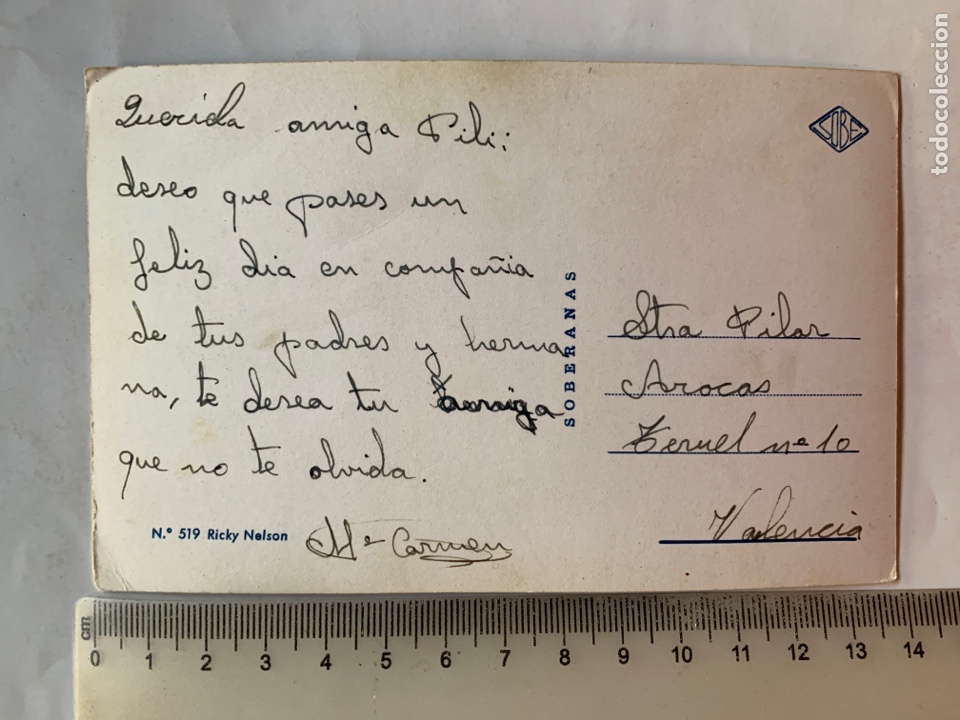 Querida amiga Pili:
deseo que pases un
feliz dia en compañia
de tus padres y herma
na, te desea tu amiga
que no te olvida.
Mª Carmen
Nº 519 Ricky Nelson
SOBERANAS
SOBE
Stra Pilar
Arocas
Teruel nº 10
Valencia
todocoleccion
cm
0 1 2 3 4 5 6 7 8 9 10 11 12 13 14